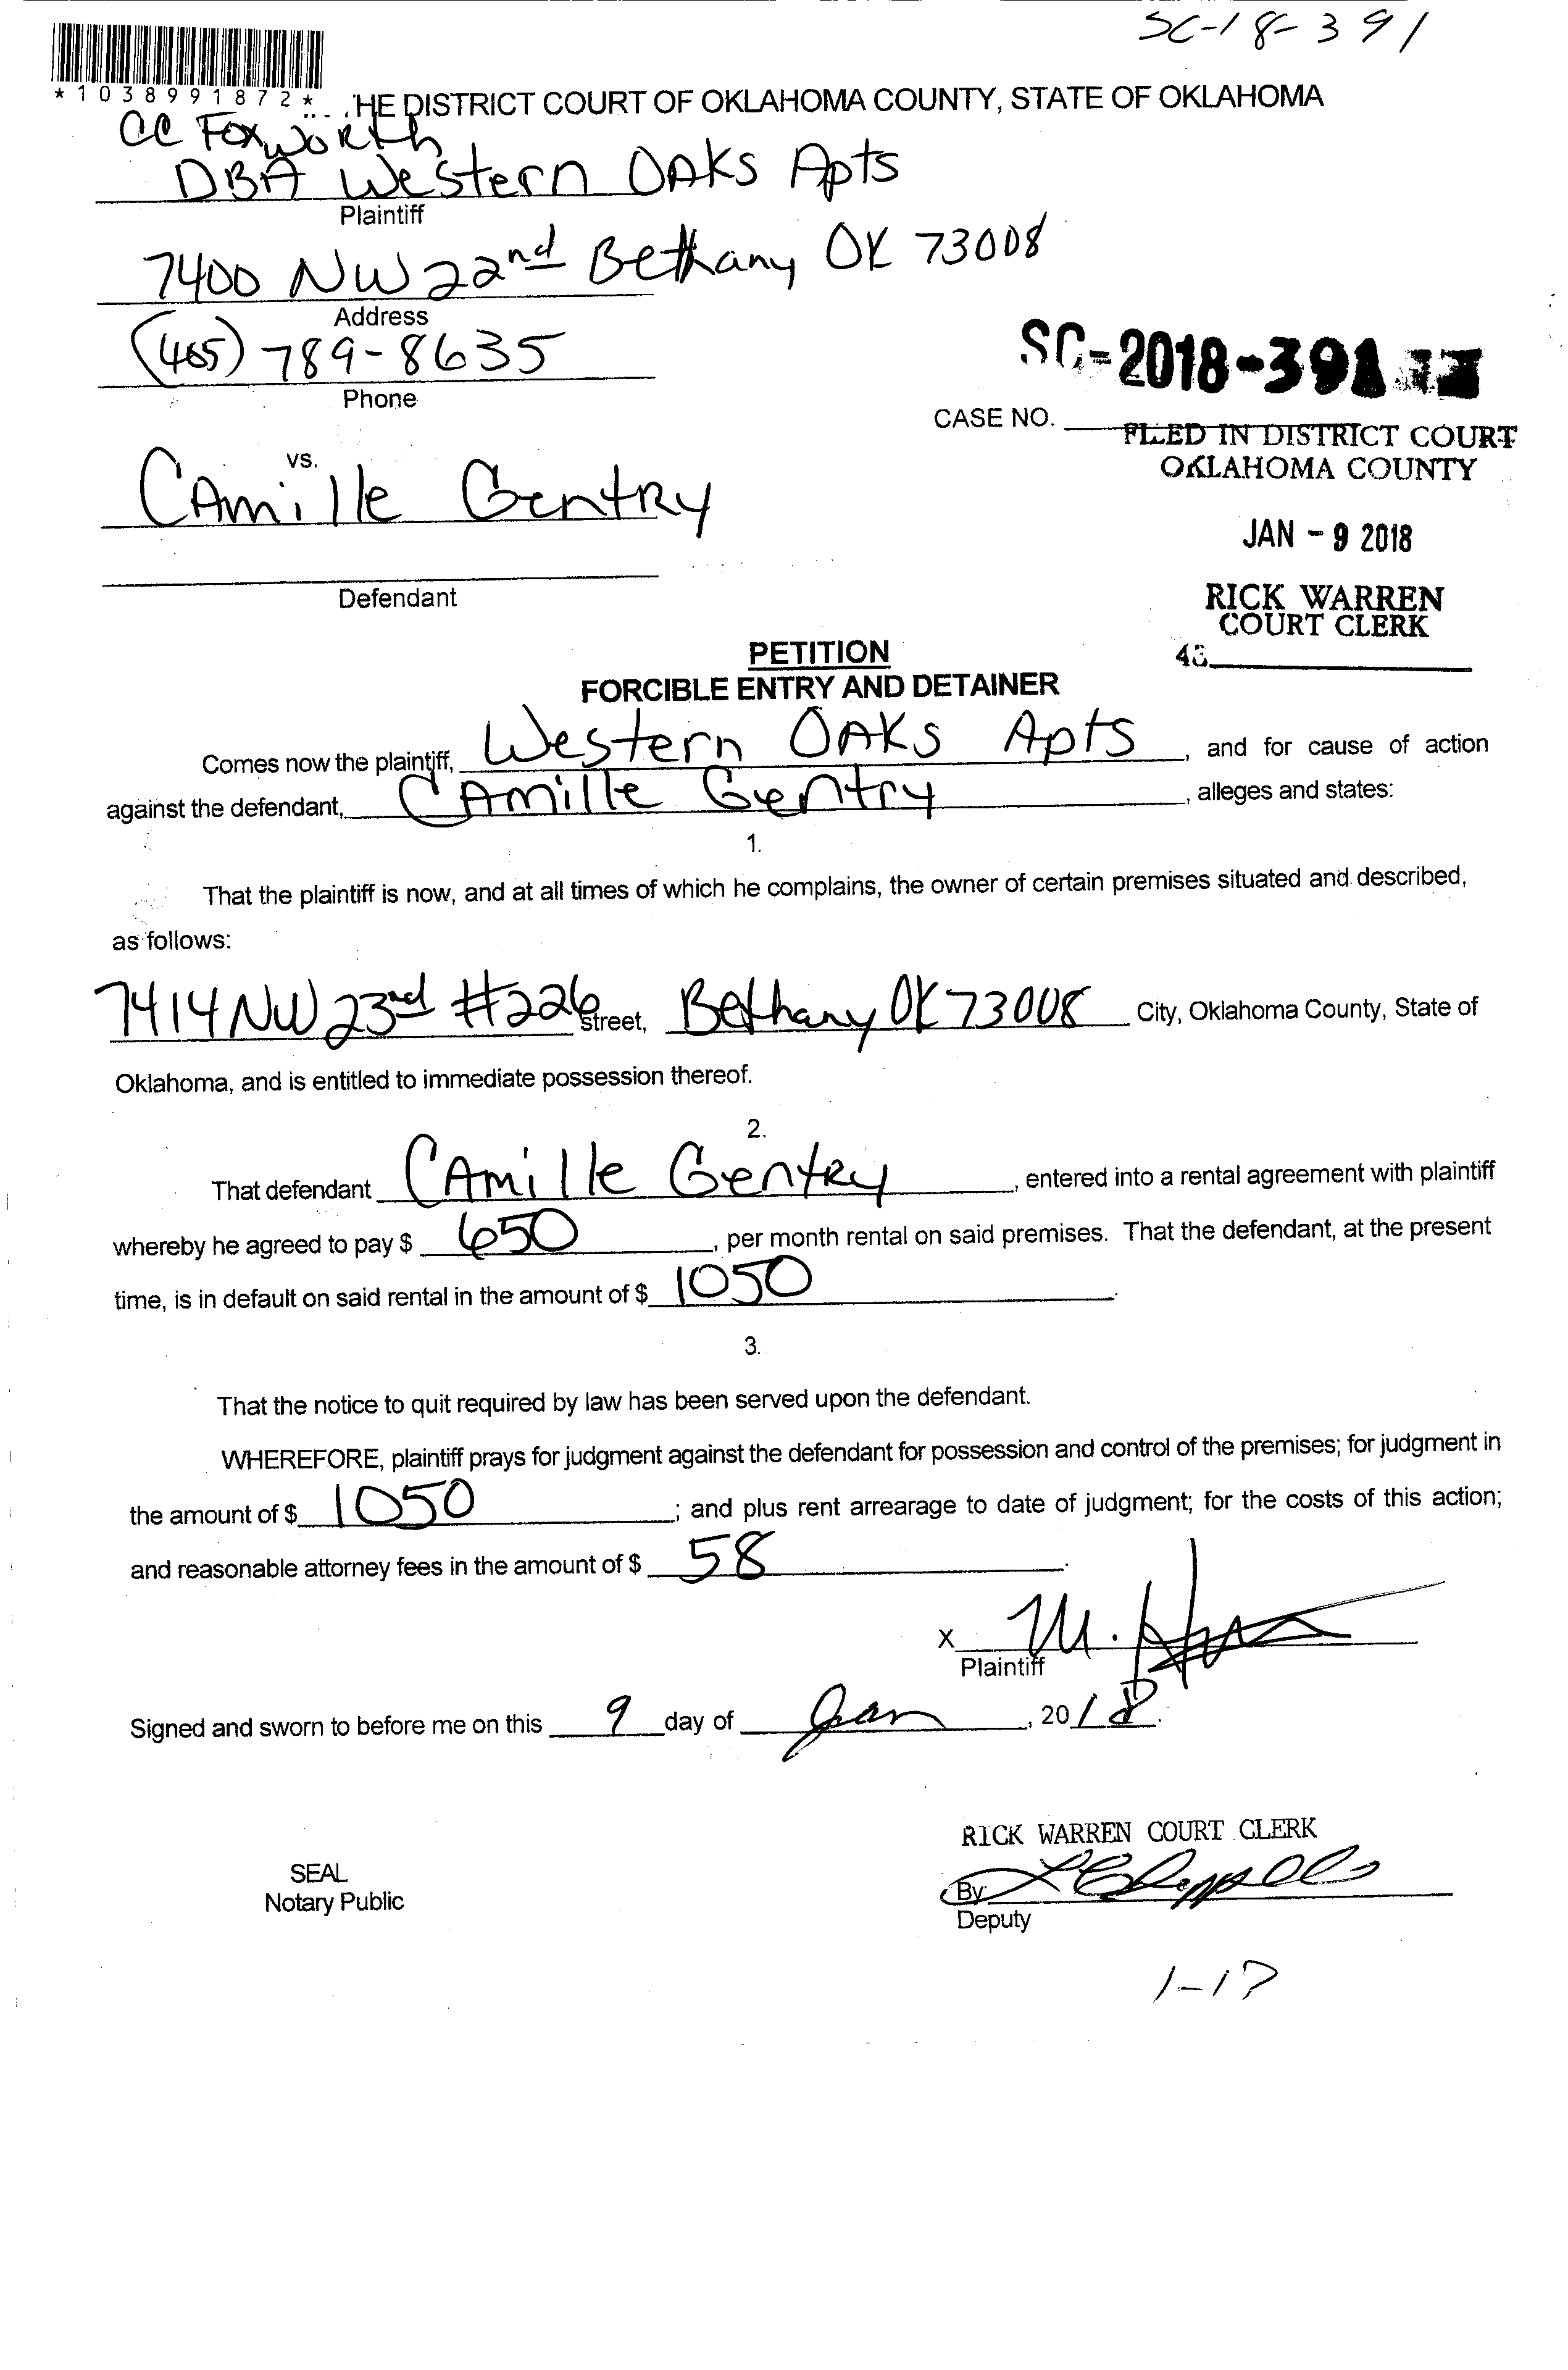 SC-18-391
*1038991872*
HE DISTRICT COURT OF OKLAHOMA COUNTY, STATE OF OKLAHOMA
CC Foxworth
DBA Western OAKs Apts
Plaintiff
7400 NW 22nd Bethany OK 73008
Address
(405) 789-8635
Phone
SC-2018-391
CASE NO.
FILED IN DISTRICT COURT
OKLAHOMA COUNTY
vs.
CAmille Gentry
JAN - 9 2018
Defendant
RICK WARREN
COURT CLERK
43
PETITION
FORCIBLE ENTRY AND DETAINER
Comes now the plaintiff, Western OAKs Apts, and for cause of action
against the defendant, CAmille Gentry, alleges and states:
1.
That the plaintiff is now, and at all times of which he complains, the owner of certain premises situated and described,
as follows:
7414 NW 23rd #226 Street, Bethany OK 73008 City, Oklahoma County, State of
Oklahoma, and is entitled to immediate possession thereof.
2.
That defendant CAmille Gentry, entered into a rental agreement with plaintiff
whereby he agreed to pay $ 650, per month rental on said premises. That the defendant, at the present
time, is in default on said rental in the amount of $ 1050.
3.
That the notice to quit required by law has been served upon the defendant.
WHEREFORE, plaintiff prays for judgment against the defendant for possession and control of the premises; for judgment in
the amount of $ 1050; and plus rent arrearage to date of judgment; for the costs of this action;
and reasonable attorney fees in the amount of $ 58.
X M.
Plaintiff
Signed and sworn to before me on this 9 day of Jan, 2018.
RICK WARREN COURT CLERK
SEAL
Notary Public
By
Deputy
1-17